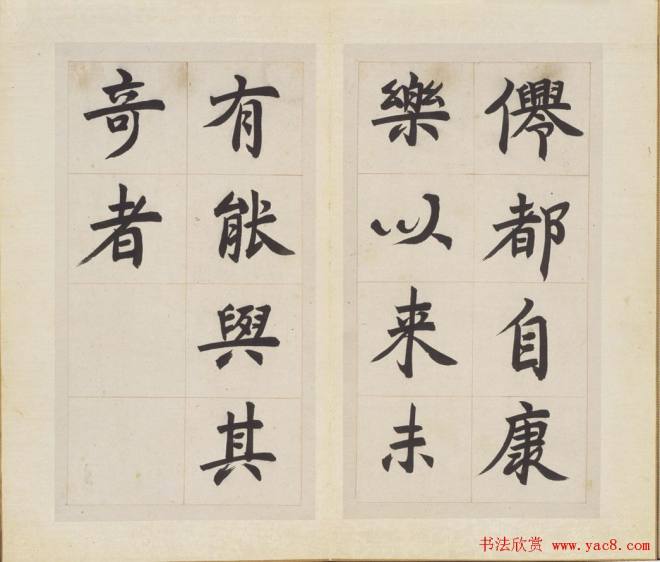 僊都自康
樂以来未
有能與其
竒者
书法欣赏 www.yac8.com